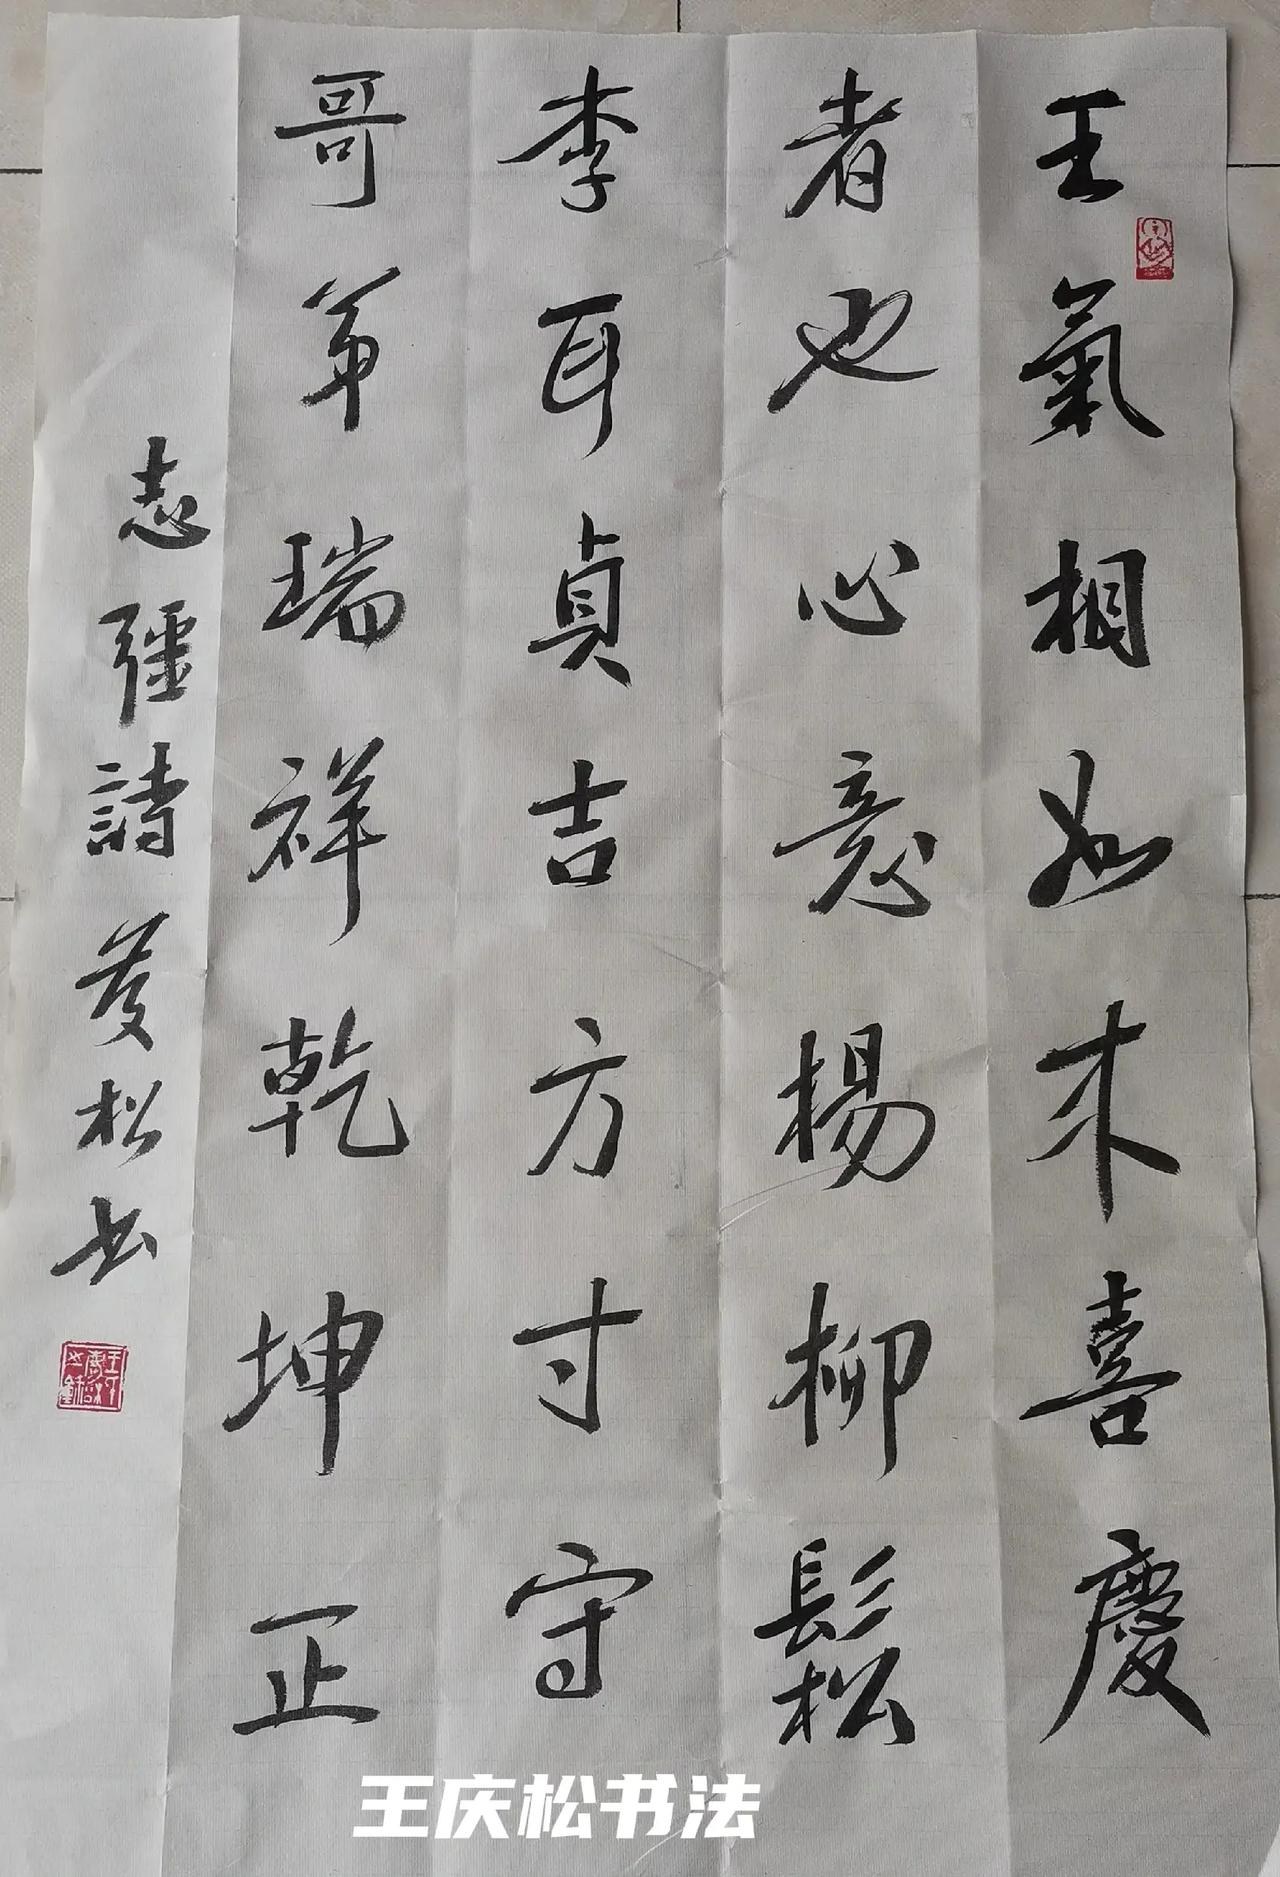 王氣相如未喜慶
者也心意楊柳鬆
李耳貞吉方寸守
哥羊瑞祥乾坤正
志彊詩慶松书
王庆松书法